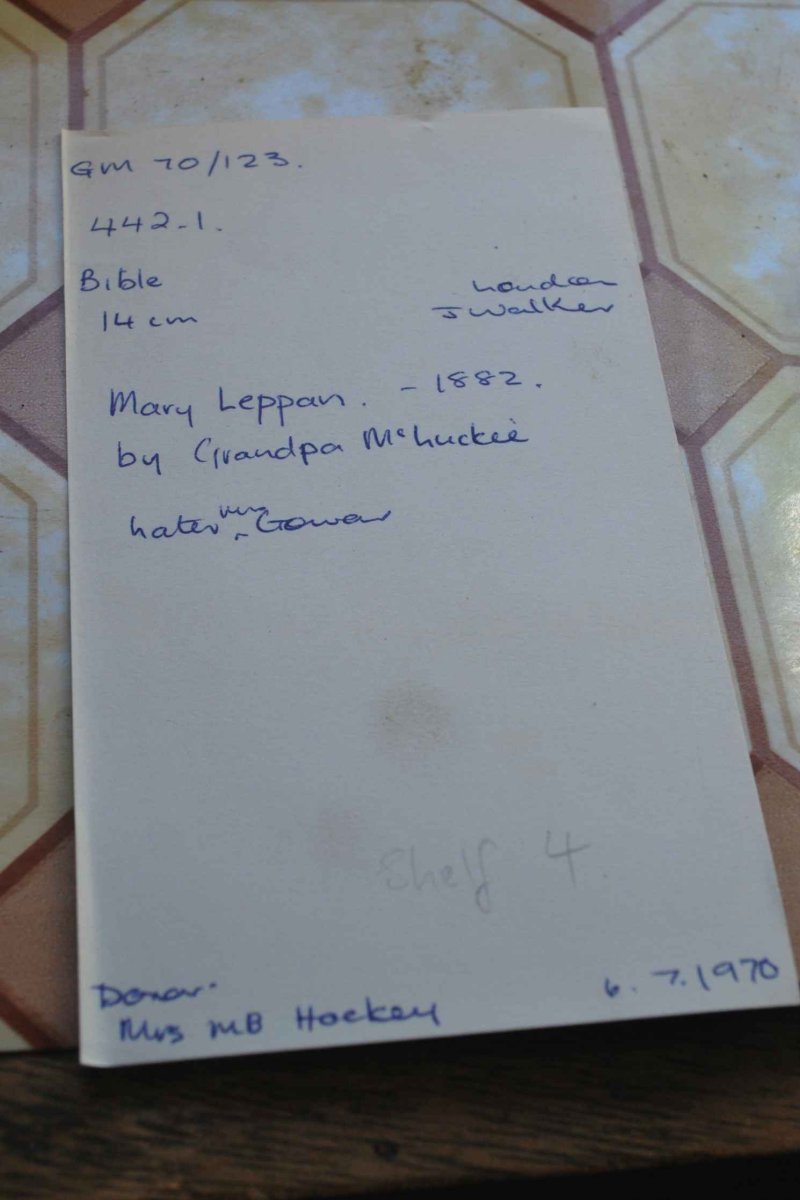 GM 70/123.
442-1.
Bible
London
14 cm
J Walker
Mary Leppan. - 1882.
by Grandpa McLuckie
Later Mrs Gowar
Shelf 4.
Donor.
Mrs MB Hockey
6. 7. 1970